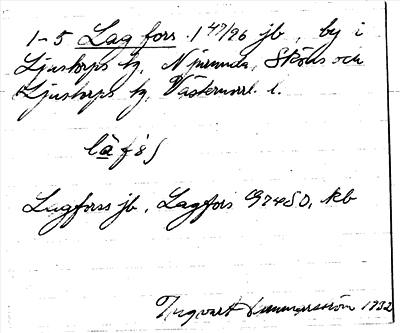 1-5 Lagfors. 1 47/96 jb, by i
Ljustorps sn, Njurunda, Sköns och
Ljustorps tg, Västernorrl. l.
låfs
Lagforss jb, Lagfors G7450, kb
Ingvart Hammarström 1932